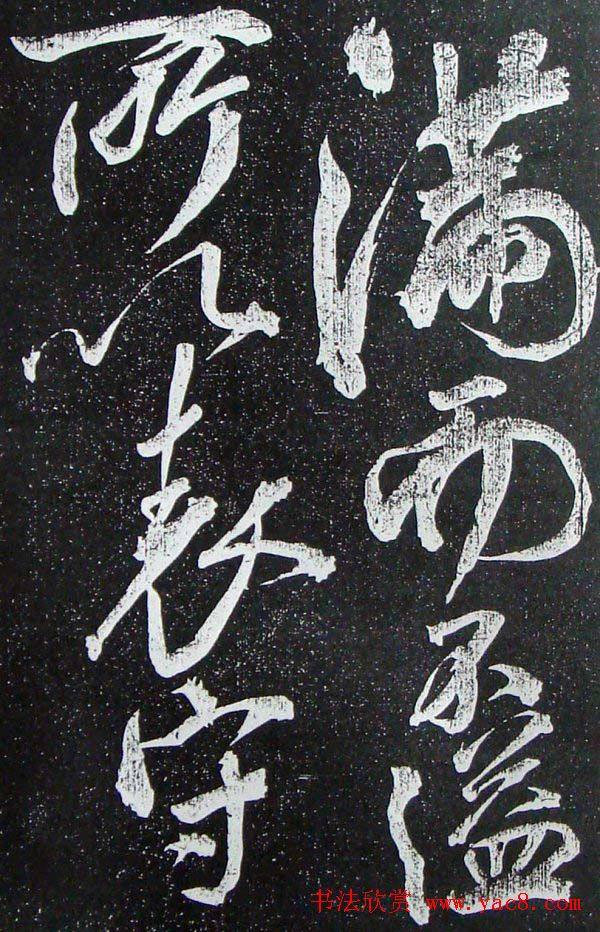 滿而不溢
所以長守
书法欣赏 www.yac8.com